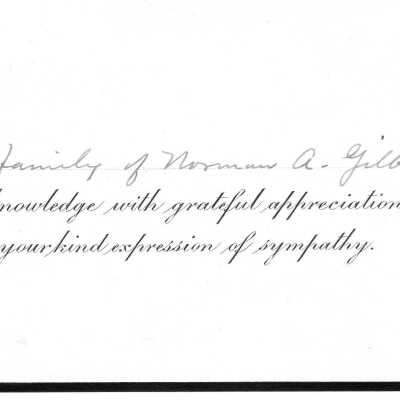 Family of Norman A. Gilb
knowledge with grateful appreciation
your kind expression of sympathy.